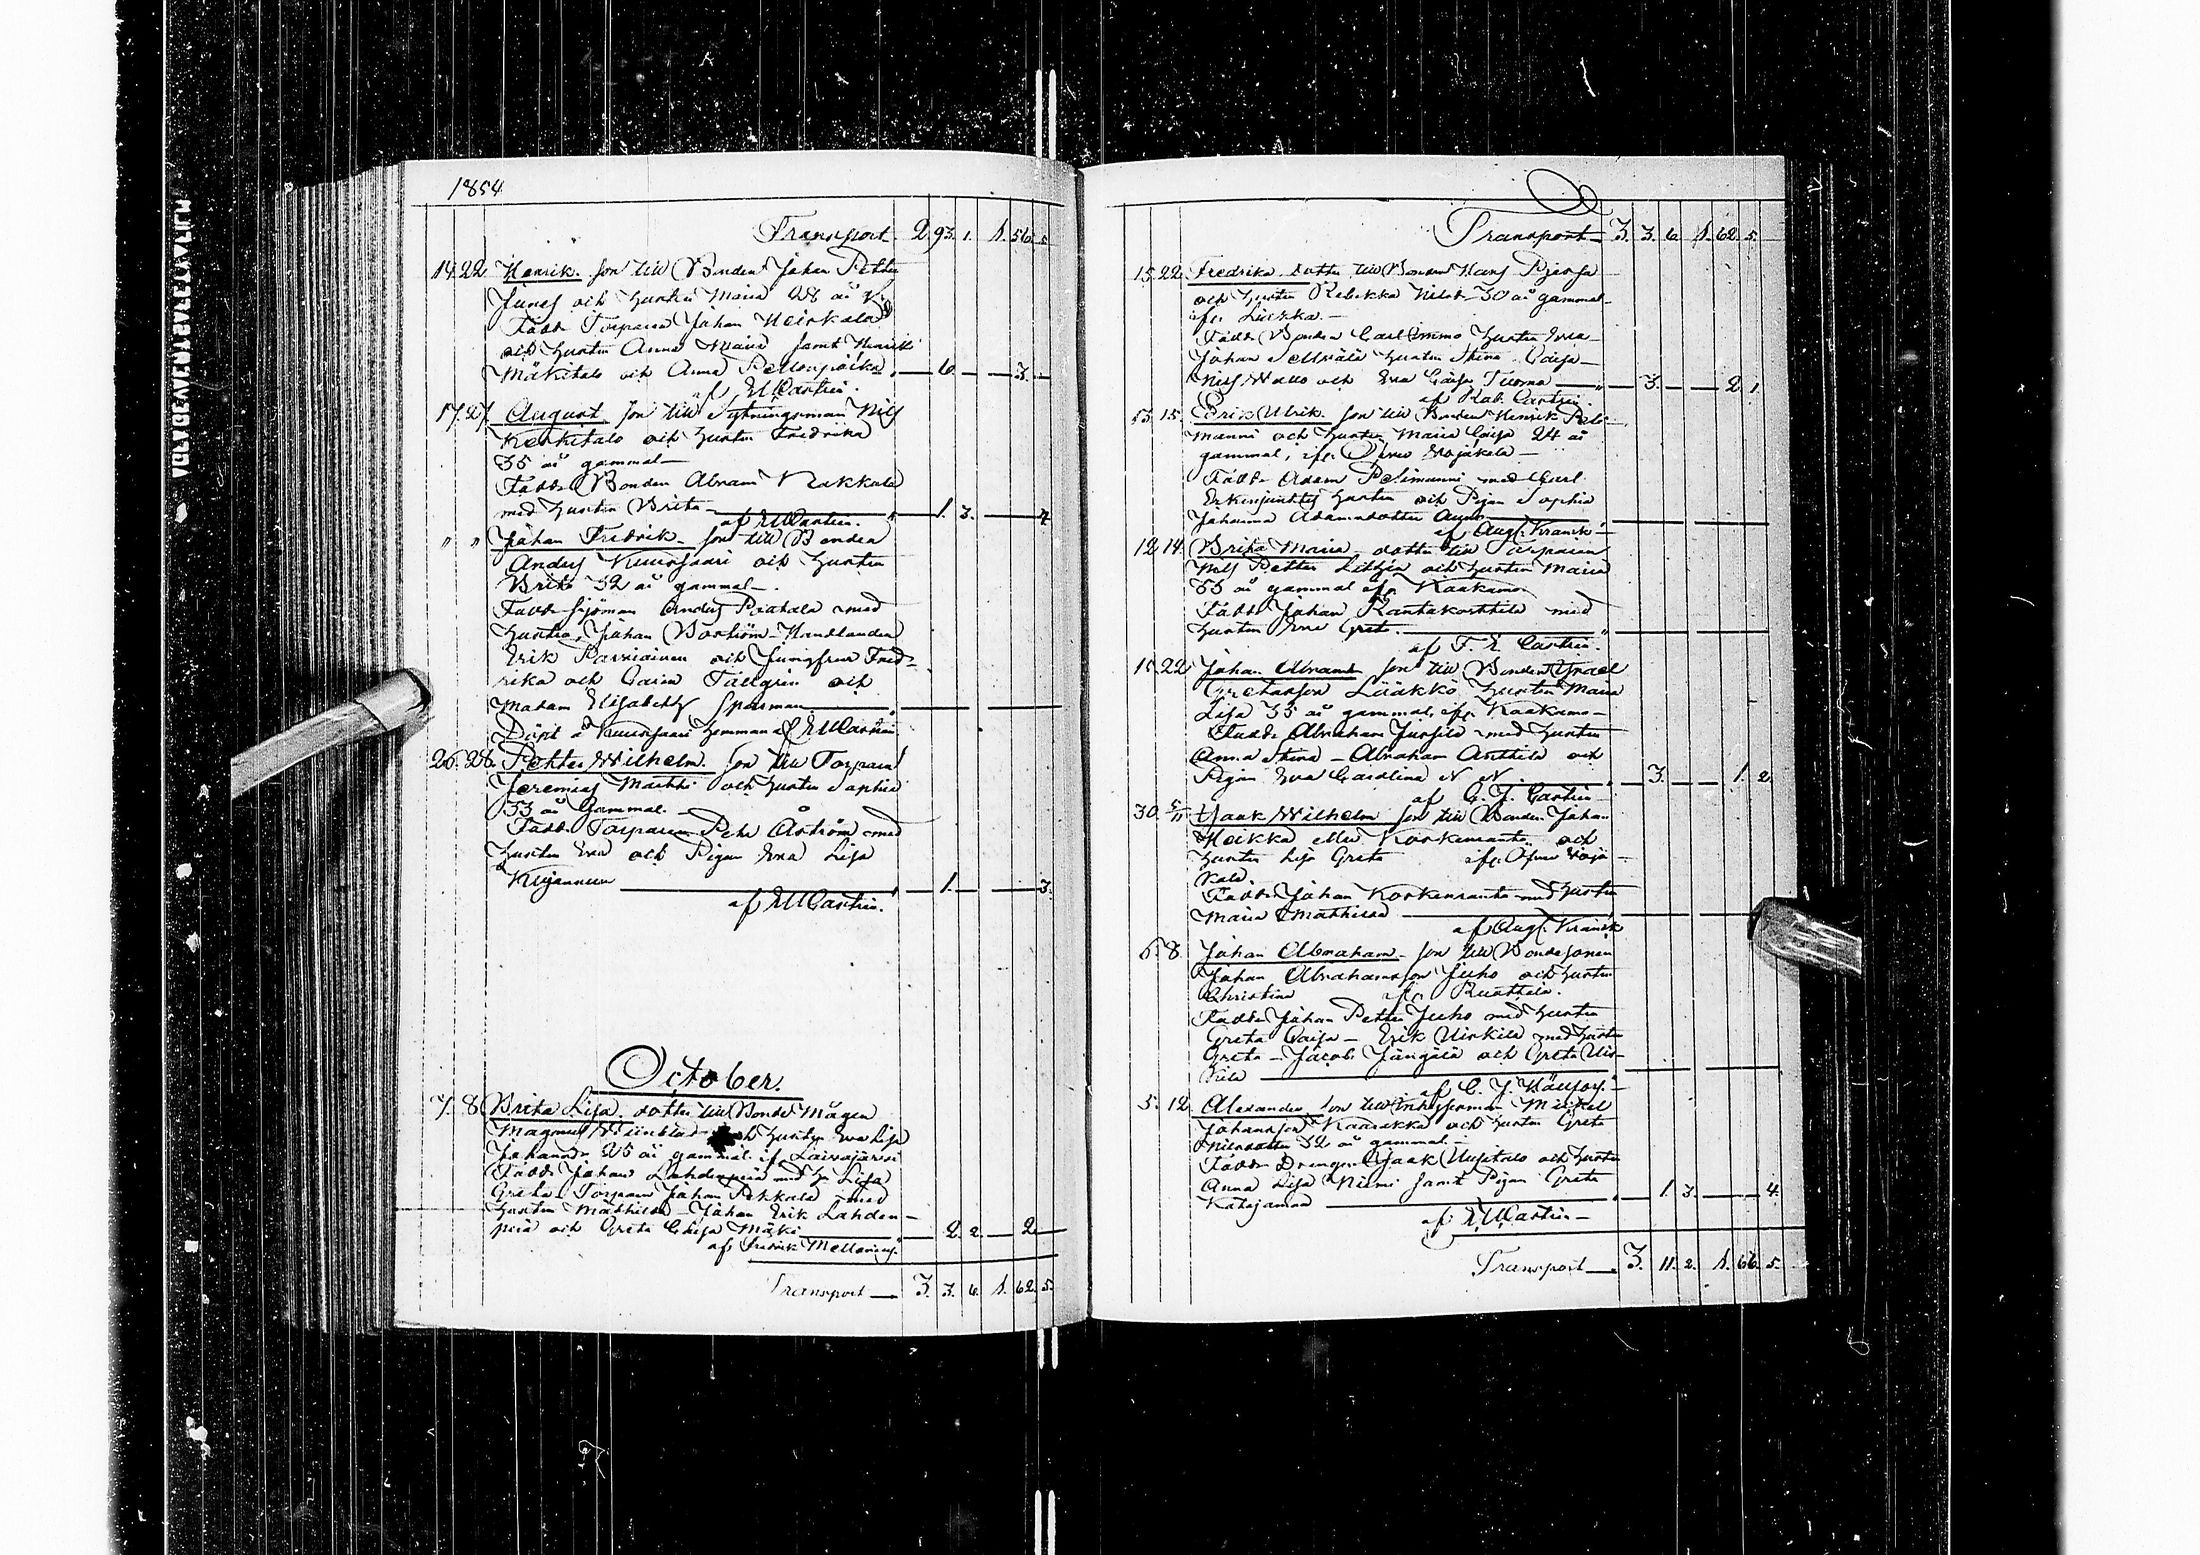 1854
Transport 2. 93. 1. 1. 56. 5.
14. 22. Henrik. Son till Bonden Johan Petter
Junes och hustru Maria 28 år
Fadd. Torparen Johan Heikkala
och hustru Anna Maria samt Henrik
Mäkitalo och Anna 6. 3.
af EMCastrén.
17. 27. August Son till Sytningsman Nils
Kerkitalo och hustru Fredrika
35 år gammal
Fadd. Bonden Abram Nakkala
med hustru Brita 1. 3. 4
af EMCastrén.
" " Johan Fredrik. Son till Bonden
Anders Kuursaari och hustru
Brita 32 år gammal
Fadd. Sjöman Anders Raahala med
hustru, Johan Boström Handlanden
Erik Parviainen och Jungfrur Fred-
rika och Carin Tällgren och
Madam Elisabeth Sparman
Döpt å Kuursaari hemman af EMCastrén
26. 28. Petter Wilhelm. Son till Torparen
Jeremias Martti och hustru Sophia
33 år Gammal.
Fadd. Torparen Pehr Åström med
hustru Eva och Pigan Eva Lisa
1. 3.
af EMCastrén.
October.
7. 8. Brita Lisa. dotter till Bonde Mågen
Magnus Wiinblad och hustru Eva Lisa
Johansdr 25 år gammal. ifr. Laivajärvi
Fadd. Johan Lahdenperä med h. Lisa
Greta. Torparen Johan Pekkala med
hustru Mathilda. Johan Erik Lahden-
perä och Greta Caisa Mäki 2. 2. 2
af Fredrik Mellenius.
Transport 3. 3. 6. 1. 62. 5.
Transport 3. 3. 6. 1. 62. 5.
15. 22. Fredrika dotter till Bonden Hans
och hustru Rebekka Nilsd. 30 år gammal
ifr. Liakka.
Fadd. Bonden Carl Emmo hustru Eva
Johan hustru Stina Caisa
Nils Wallo och Eva Caisa Tuoma 3. 2. 1.
af Kab. Castrén.
15. Erik Ulrik. Son till Bonden Henrik Peli-
manni och hustru Maria Caisa 24 år
gammal, ifr. Öfvre Wojakala
Fadd. Adam Pelimanni med Carl
Erkinjuntti hustru och Pigan Sophia
Johanna Adamsdotter
af Aug. Kranck
12. 14. Brita Maria dotter till Torparen
Nils Petter och hustru Maria
35 år gammal ifr. Kaakamo
Fadd. Johan Rantakorttila med
hustru Eva Greta.
af F. E. Castrén.
15. 22 Johan Abram Son till Bonden Israel
Lääkkö hustru Maria
Lisa 35 år gammal, ifr. Kaakamo
Fadd. Abraham Junsila med hustru
Anna Stina Abraham Anttila och
Pigan Eva Carolina N. N. 3. 1. 2.
af C. J. Castrén
30. 5/11 Isaak Wilhelm Son till Bonden Johan
Heikka eller Korkearanta och
hustru Lisa Greta ifr. Öfvre Woja-
kala.
Fadd. Johan Korkearanta med hustru
Maria Mathilda
af Aug. Kranck
6. 8. Johan Abraham. Son till Bondesonen
Johan Abrahamsson Juho och hustru
Christina ifr. Ruottala.
Fadd. Johan Petter Juho med hustru
Greta Caisa Erik Uirkila med hustru
Greta Jacob Jängälä och Greta Uir-
kila
af C. J.
5. 12. Alexander Son till Inhysesman Mickel
Johansson Kaarakka och hustru Greta
Nilsdotter 32 år gammal.
Fadd. Drengen Isaak Uusitalo och hustru
Anna Lisa Niemi samt Pigan Greta
Katajamaa 1. 3. 4.
af EMCastrén
Transport 3. 11. 2. 1. 66. 5.